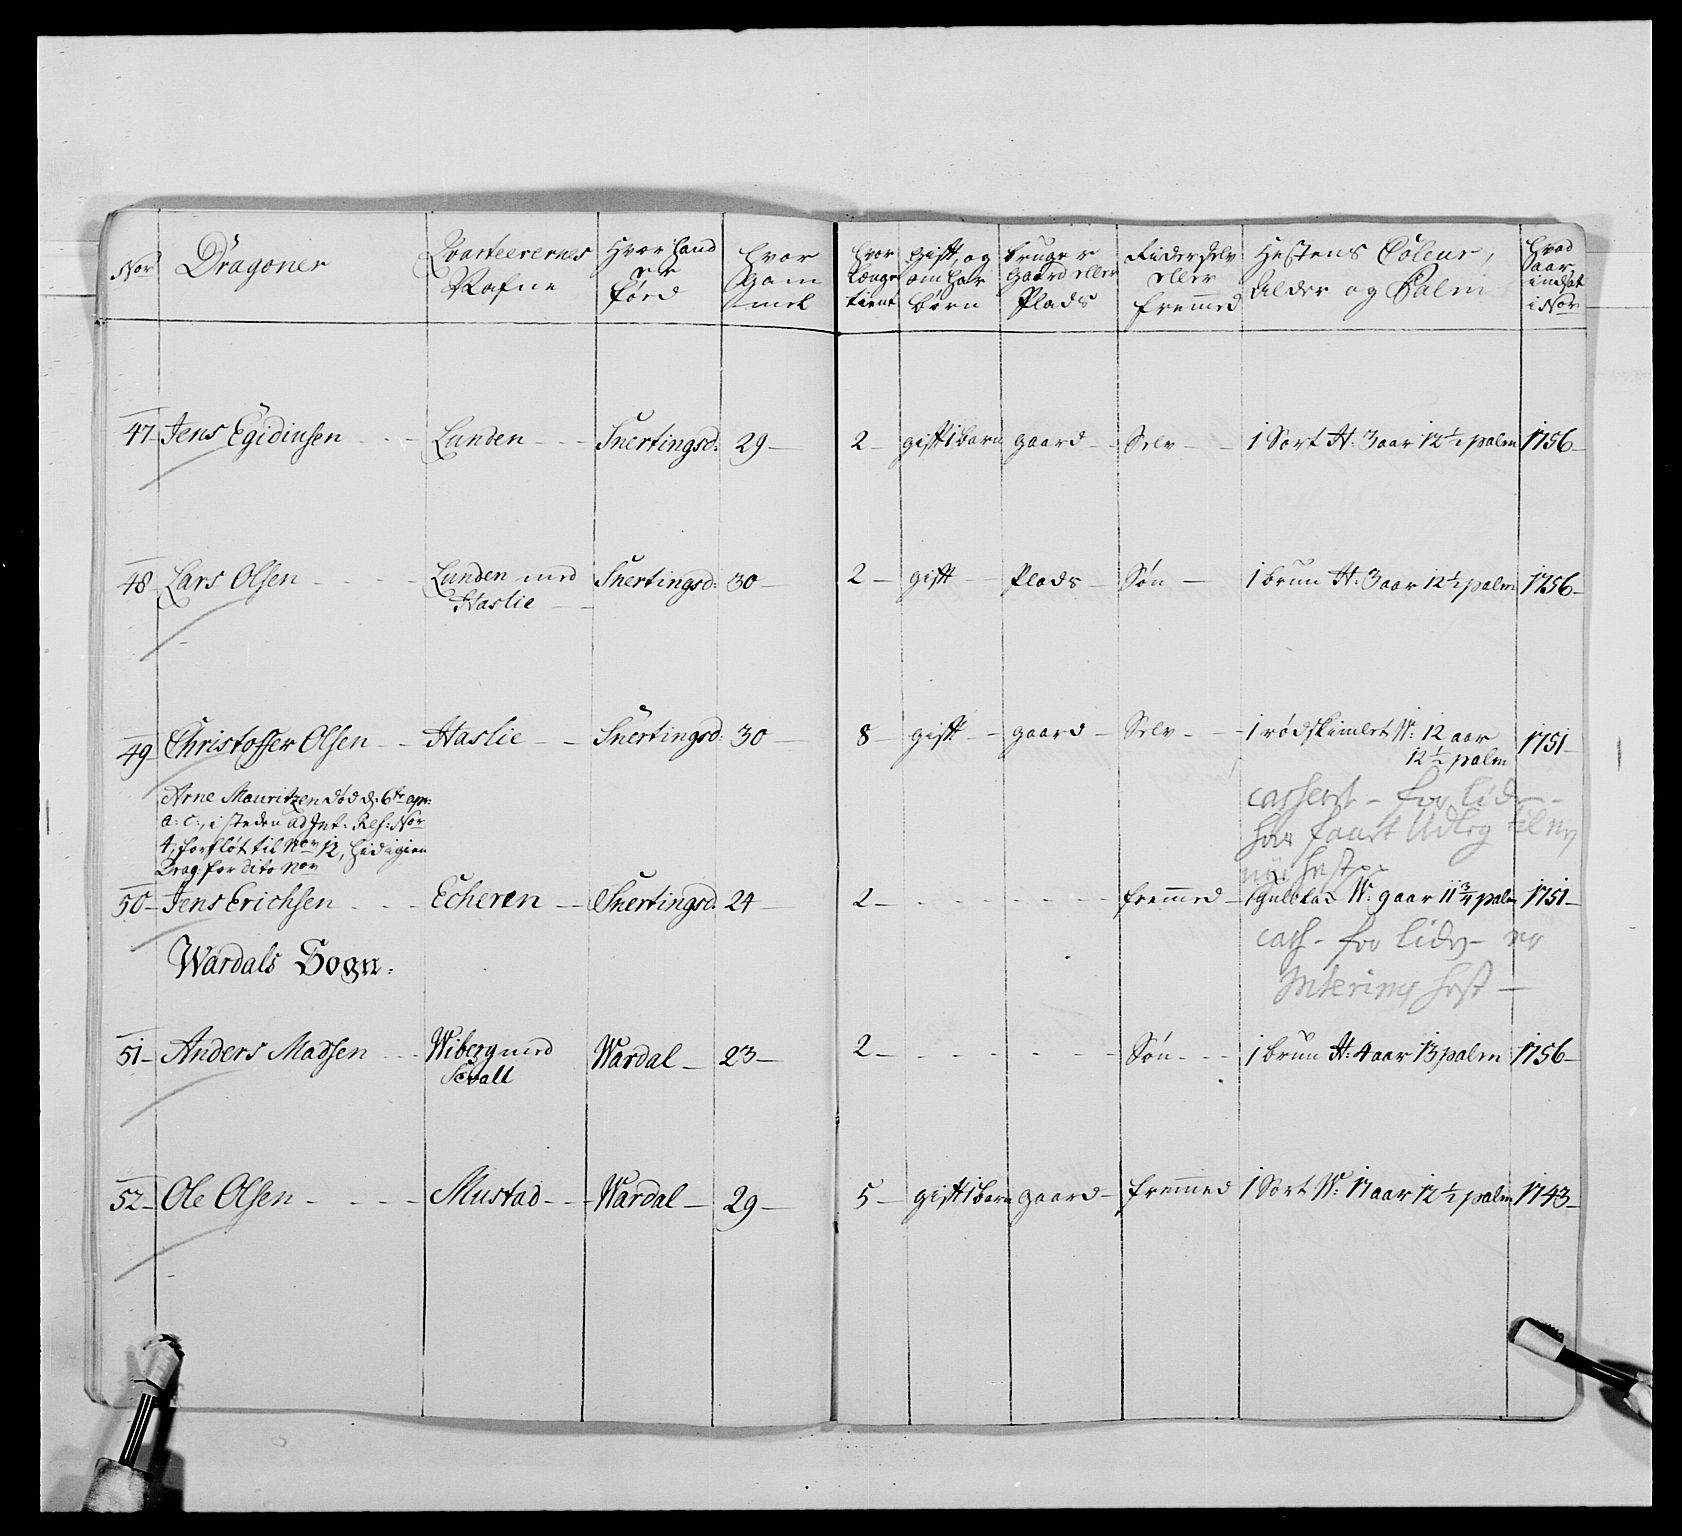 Nor Dragoner Qvarteerernes Nafne Hvor hand er föed hvor gam mel hvor længe tient gift, og om har børn bruger gaard eller Plads Fuder selv eller fremmed Hestens Coleur, Alder og Palm hvad aar indsat i Nor
47 Jens Egidiusen Lunden Snertingsd: 29 2 gift 1 barn gaard Selv 1 Sort H: 3 aar 12 1/2 palm 1756
48 Lars Olsen Lunden med Haslie Snertingsd: 30 2 gift Plads Søn 1 brun H: 3 aar 12 1/2 palm 1756
49 Christoffer Olsen Haslie Snertingsd: 30 8 gift gaard Selv 1 rødskimlet W: 12 aar 12 1/2 palm 1751
Arne Mauritzen død d: 6te apr:
a: c:, i steden ad Int: Res: Nor
4, forfløt til Nor 12,
Drag: for dito Nor
casseret for
har faaet Udleg til
hest
50 Jens Erichsen Echeren Snertingsd: 24 2 fremmed 1 gulblak W: 9 aar 11 3/4 palm 1751
Wardals Sogn:
cass for
Interims hest
51 Anders Madsen Wiberg med Sevall Wardal 23 2 Søn 1 brun H: 4 aar 13 palm 1756
52 Ole Olsen Mustad Wardal 29 5 gift 1 barn gaard fremmed 1 Sort W: 17 aar 12 1/2 palm 1743